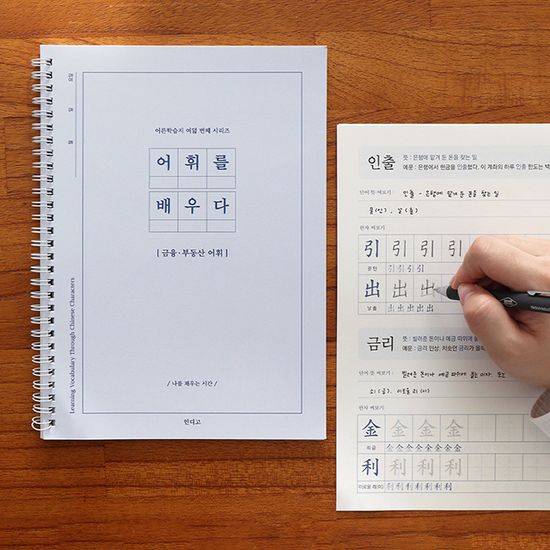 요일
일
월
어른학습지 여덟 번째 시리즈
어휘를
배우다
[ 금융·부동산 어휘 ]
/ 나를 채우는 시간 /
인디고
Learning Vocabulary Through Chinese Characters
인출
뜻 : 은행에 맡겨 둔 돈을 찾는 일
예문 : 은행에서 현금을 인출했다. 이 계좌의 하루 인출 한도는 백
단어 뜻 써보기
인출 - 은행에 맡겨 둔 돈을 찾는 일
끌(인), 날(출)
한자 써보기
引 引 引 引
끌 인 引 引 引 引
出 出 出
날 출 出 出 出 出 出
금리
뜻 : 빌려준 돈이나 예금 따위에 붙
예문 : 금리 인상. 치솟던 금리가 올
단어 뜻 써보기
빌려준 돈이나 예금 따위에 붙는 이자. 또는
쇠(금), 이로울 리(이)
한자 써보기
金 金 金 金
쇠 금 金 金 金 金 金 金 金 金
利 利 利 利
이로울 리(이) 利 利 利 利 利 利